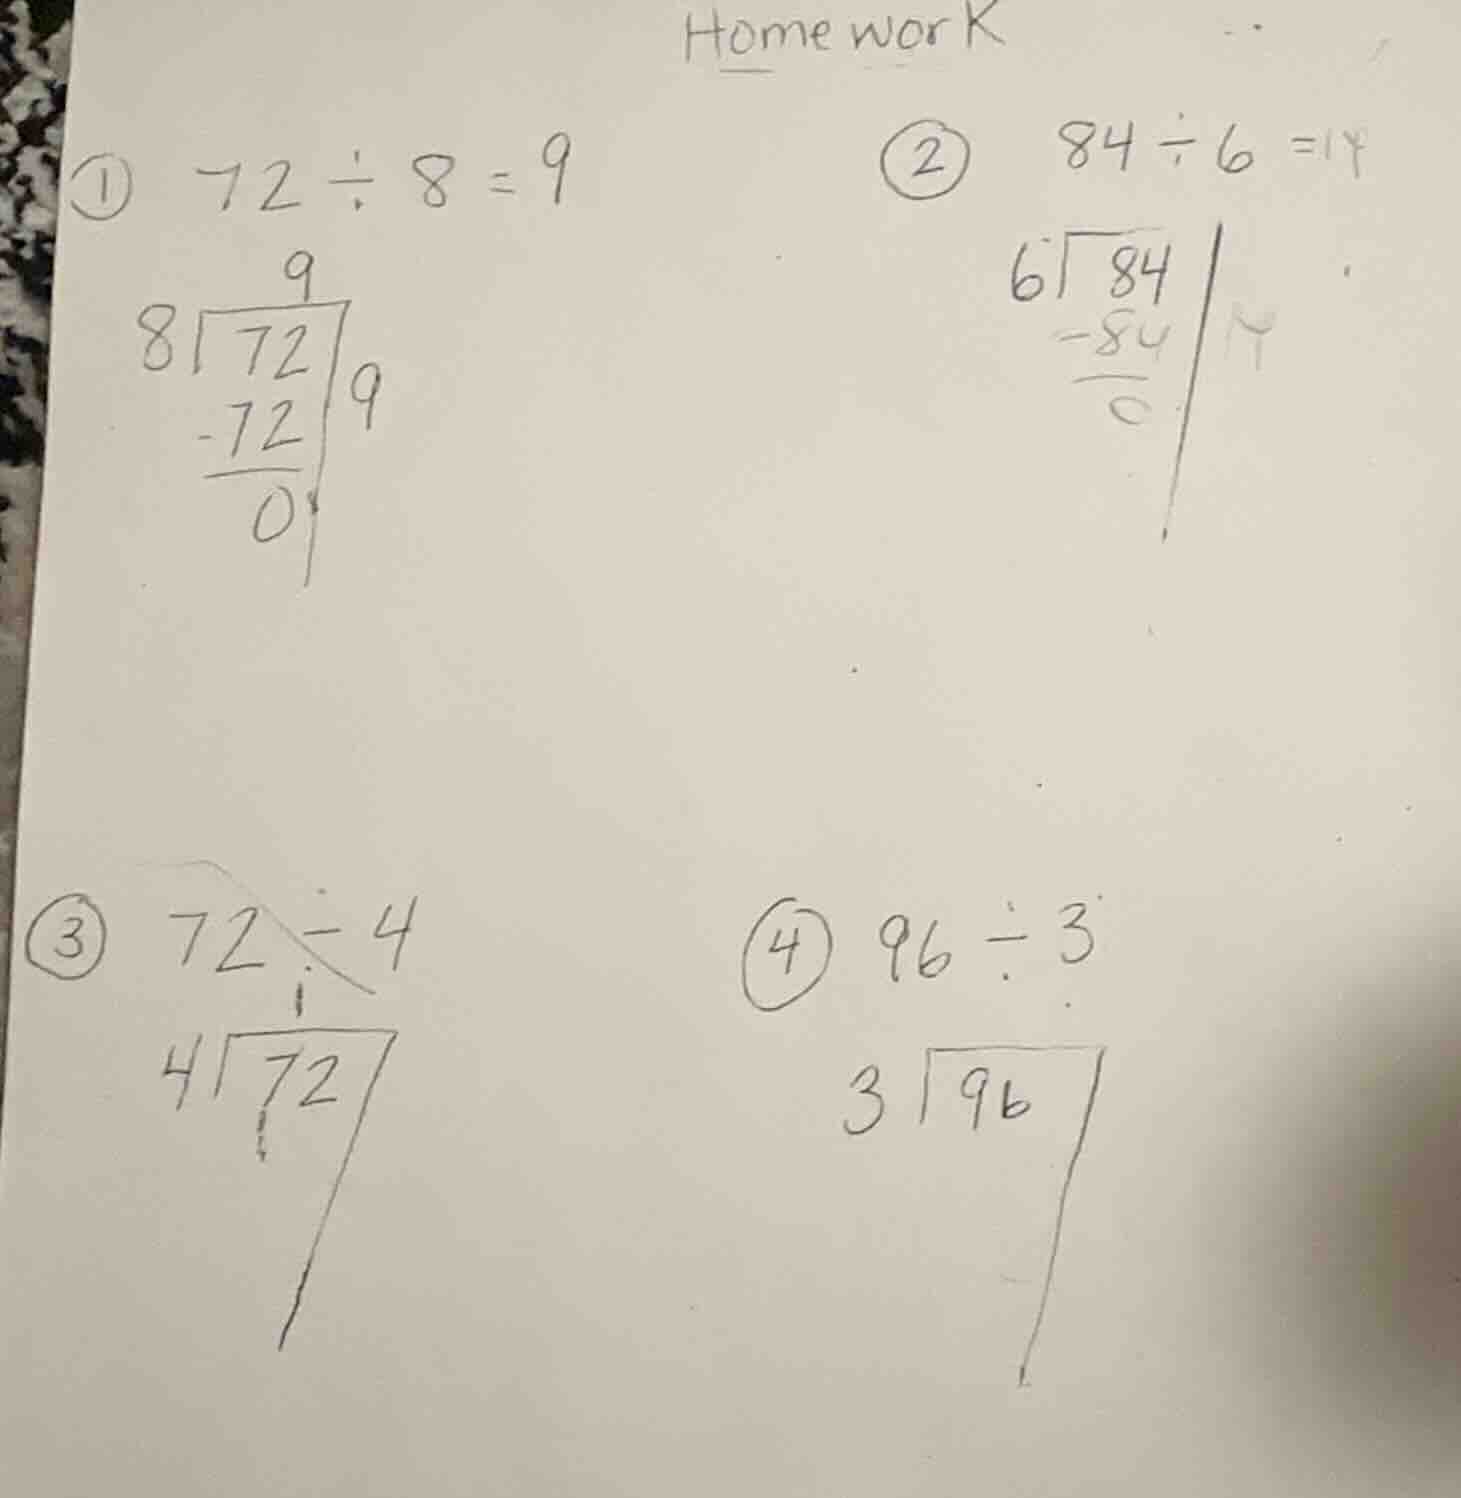 Homework
① 72 ÷ 8 = 9
9
8 72
9
-72
0
② 84 ÷ 6 = 14
6 84
-84 14
0
③ 72 ÷ 4
1
4 72
④ 96 ÷ 3
3 96